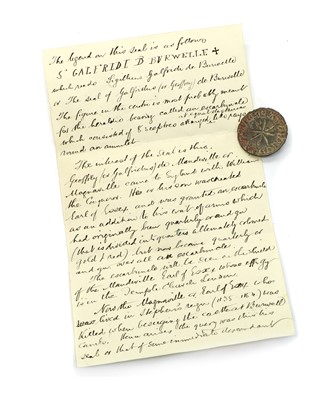 The legend on this seal is as follows
S' GALFRIDE D BURWELLE +
which reads Sigillum Galfride de Burwelle
or The seal of Galfridus (or Geoffrey) de Burwelle
The figure in the centre is most probably meant
for the heraldic bearing called an escarbuncle
which consisted of 8 sceptres arranged
round an annulet
The interest of the Seal is this.
Geoffrey (or Galfridus) de Mandeville or
Magnaville came to England with William
the Conqueror. He or his son was created
Earl of Essex and was granted an escarbuncle
as an addition to his coat of arms which
had originally been quarterly or and gu
(that is divided in 4 quarters alternately coloured
gold & red) but now became quarterly or
and gu over all an escarbuncle.
The escarbuncle will be seen on the shield
of the Mandeville Earl of Essex whose effigy
is in the Temple Church London
Now the Magnaville or Earl of Essex who
lived in Stephen's reign (1135 1154) was
killed when besieging the castle at Burwell
Cambs. Hence arises the query was this his
seal or that of some immediate descendant